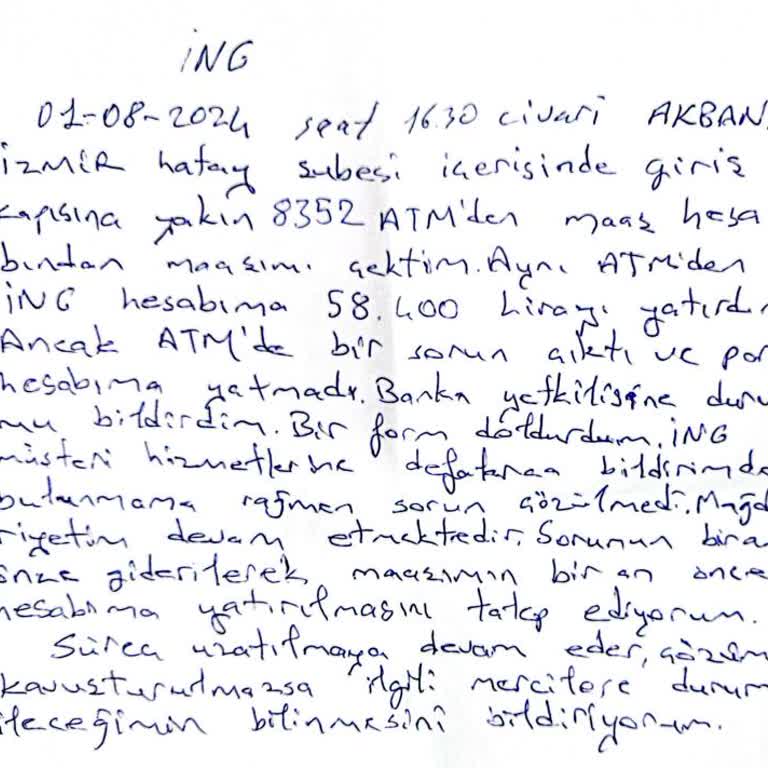 ING
01-08-2024 saat 16.30 civarı AKBAN
İZMİR hatay şubesi içerisinde giriş
kapısına yakın 8352 ATM'den maaş hesa
bından maaşımı çektim. Aynı ATM'den
ING hesabıma 58.400 lirayı yatırdı
Ancak ATM'de bir sorun çıktı ve par
hesabıma yatmadı. Banka yetkilisine duru
mu bildirdim. Bir form doldurdum. ING
müşteri hizmetlerine defalarca bildirimde
bulunmama rağmen sorun çözülmedi. Mağd
riyetim devam etmektedir. Sorunun bir a
önce giderilerek maaşımın bir an önce
hesabıma yatırılmasını talep ediyorum.
Süreç uzatılmaya devam eder, çözüm
kavuşturulmazsa ilgili mercilere durum
ileceğimin bilinmesini bildiriyorum.